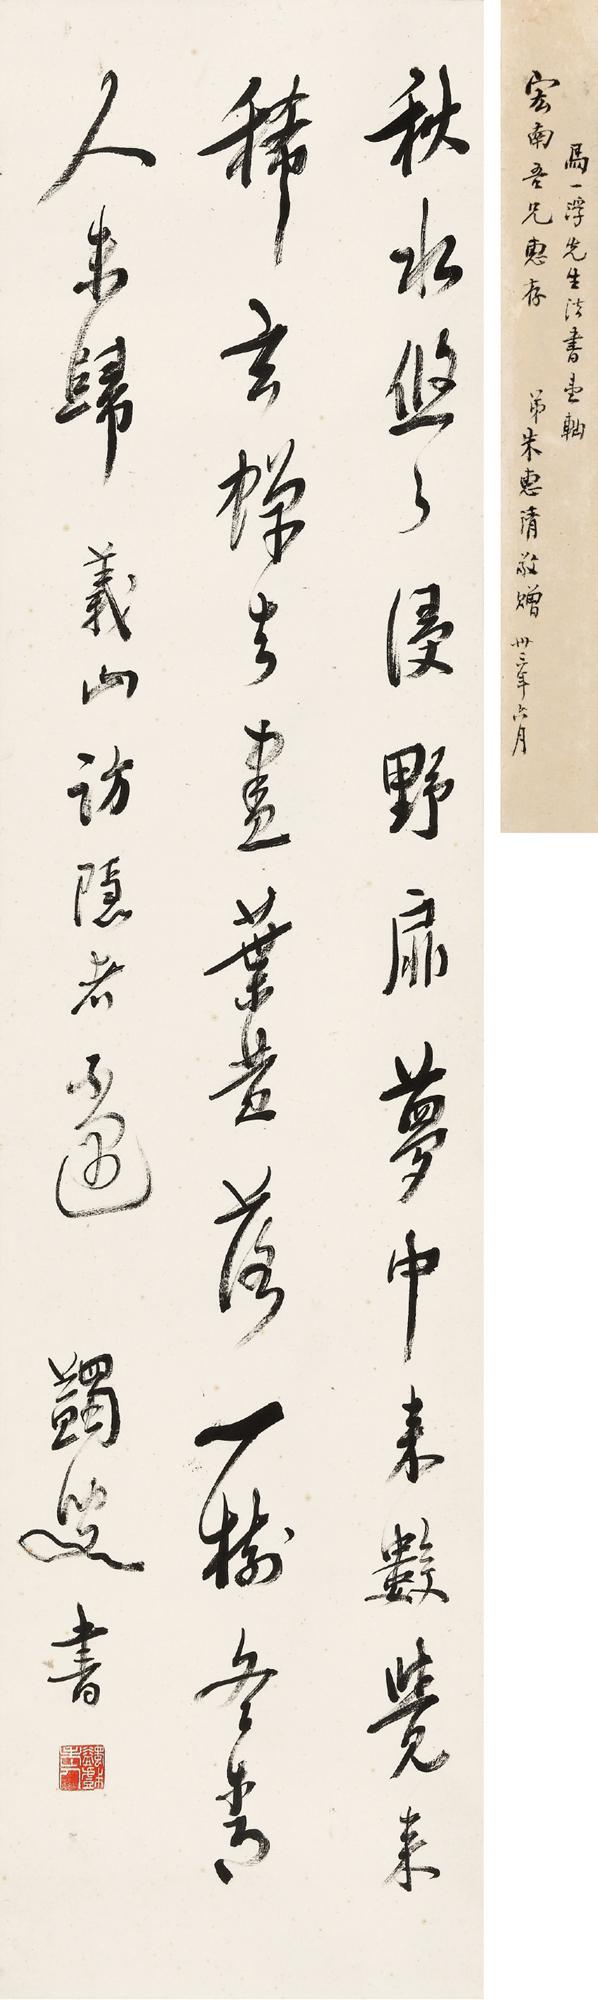 馬一浮先生法書直軸
宏南吾兄惠存　弟朱惠清敬贈　卅三年六月
秋水悠々浸野扉夢中来數覺来
稀玄蟬去盡葉黄落一樹冬青
人未歸　義山訪隱者不遇　蠲叟書